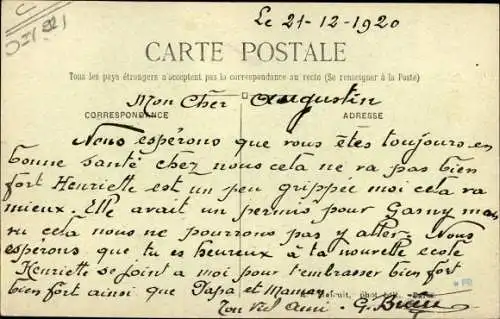 Le 21-12-1920
CARTE POSTALE
Tous les pays étrangers n'acceptent pas la correspondance au recto (Se renseigner à la Poste)
Mon Cher Augustin
CORRESPONDANCE ADRESSE
Nous espérons que vous êtes toujours en
bonne santé chez nous cela ne va pas bien
fort Henriette est un peu grippée moi cela va
mieux. Elle avait un permis pour Gasny mais
vu cela nous ne pourrons pas y aller. Nous
espérons que tu es heureux à ta nouvelle école
Henriette se joint a moi pour t'embrasser bien fort
bien fort ainsi que Papa et Maman
Ton Vieil Ami G.